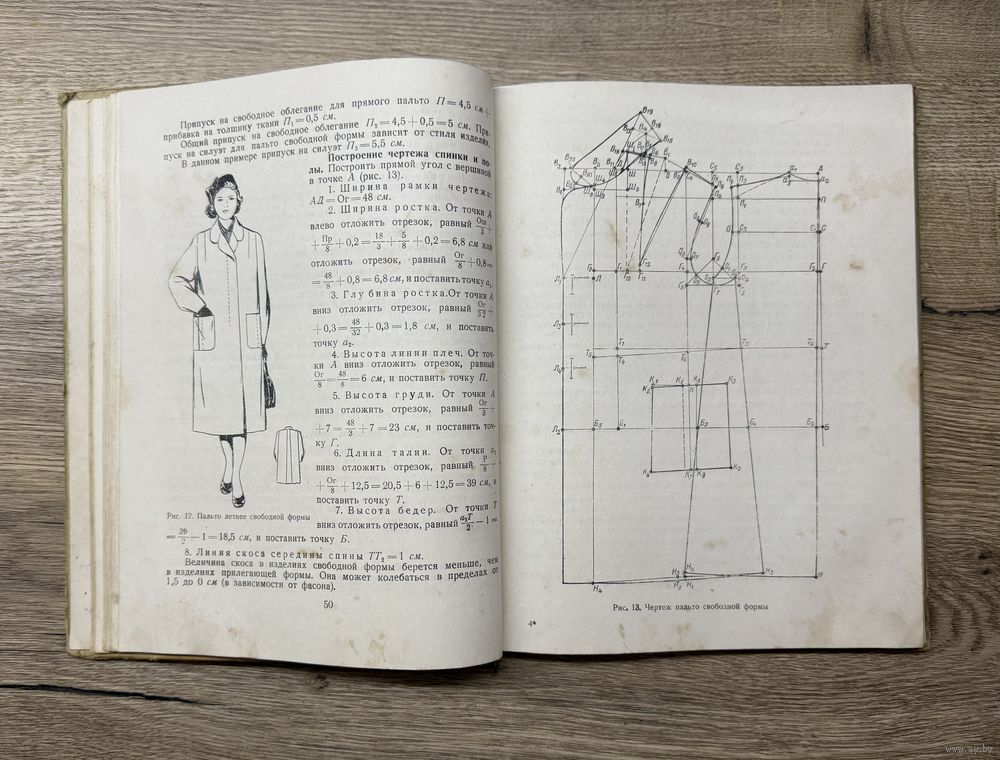 Припуск на свободное облегание для прямого пальто П=4,5 см+
прибавка на толщину ткани П₁=0,5 см.
Общий припуск на свободное облегание П₂=4,5+0,5=5 см. При-
пуск на силуэт для пальто свободной формы зависит от стиля изделия.
В данном примере припуск на силуэт П₃=5,5 см.
Построение чертежа спинки и по-
лы. Построить прямой угол с вершиной
в точке А (рис. 13).
1. Ширина рамки чертежа:
АД=Ог=48 см.
2. Ширина ростка. От точки А
влево отложить отрезок, равный Ош/3 +
+ Пр/8 +0,2= 18/3 + 5/8 +0,2=6,8 см или
отложить отрезок, равный Ог/8 +0,8=
= 48/8 +0,8=6,8 см, и поставить точку а₁.
3. Глубина ростка. От точки А
вниз отложить отрезок, равный Ог/32 +
+0,3= 48/32 +0,3=1,8 см, и поставить
точку а₂.
4. Высота линии плеч. От точ-
ки А вниз отложить отрезок, равный
Ог/8 = 48/8 =6 см, и поставить точку П.
5. Высота груди. От точки А
вниз отложить отрезок, равный Ог/3 +
+7= 48/3 +7=23 см, и поставить точ-
ку Г.
6. Длина талии. От точки а₂
вниз отложить отрезок, равный Р/8 +
+ Ог/8 +12,5=20,5+6+12,5=39 см, и
поставить точку Т.
7. Высота бедер. От точки Т
вниз отложить отрезок, равный а₂Т/2 −1=
Рис. 12. Пальто летнее свободной формы
= 39/2 −1=18,5 см, и поставить точку Б.
8. Линия скоса середины спины ТТ₂=1 см.
Величина скоса в изделиях свободной формы берется меньше, чем
в изделиях прилегающей формы. Она может колебаться в пределах от
1,5 до 0 см (в зависимости от фасона).
50
Рис. 13. Чертеж пальто свободной формы
4*
www.ay.by